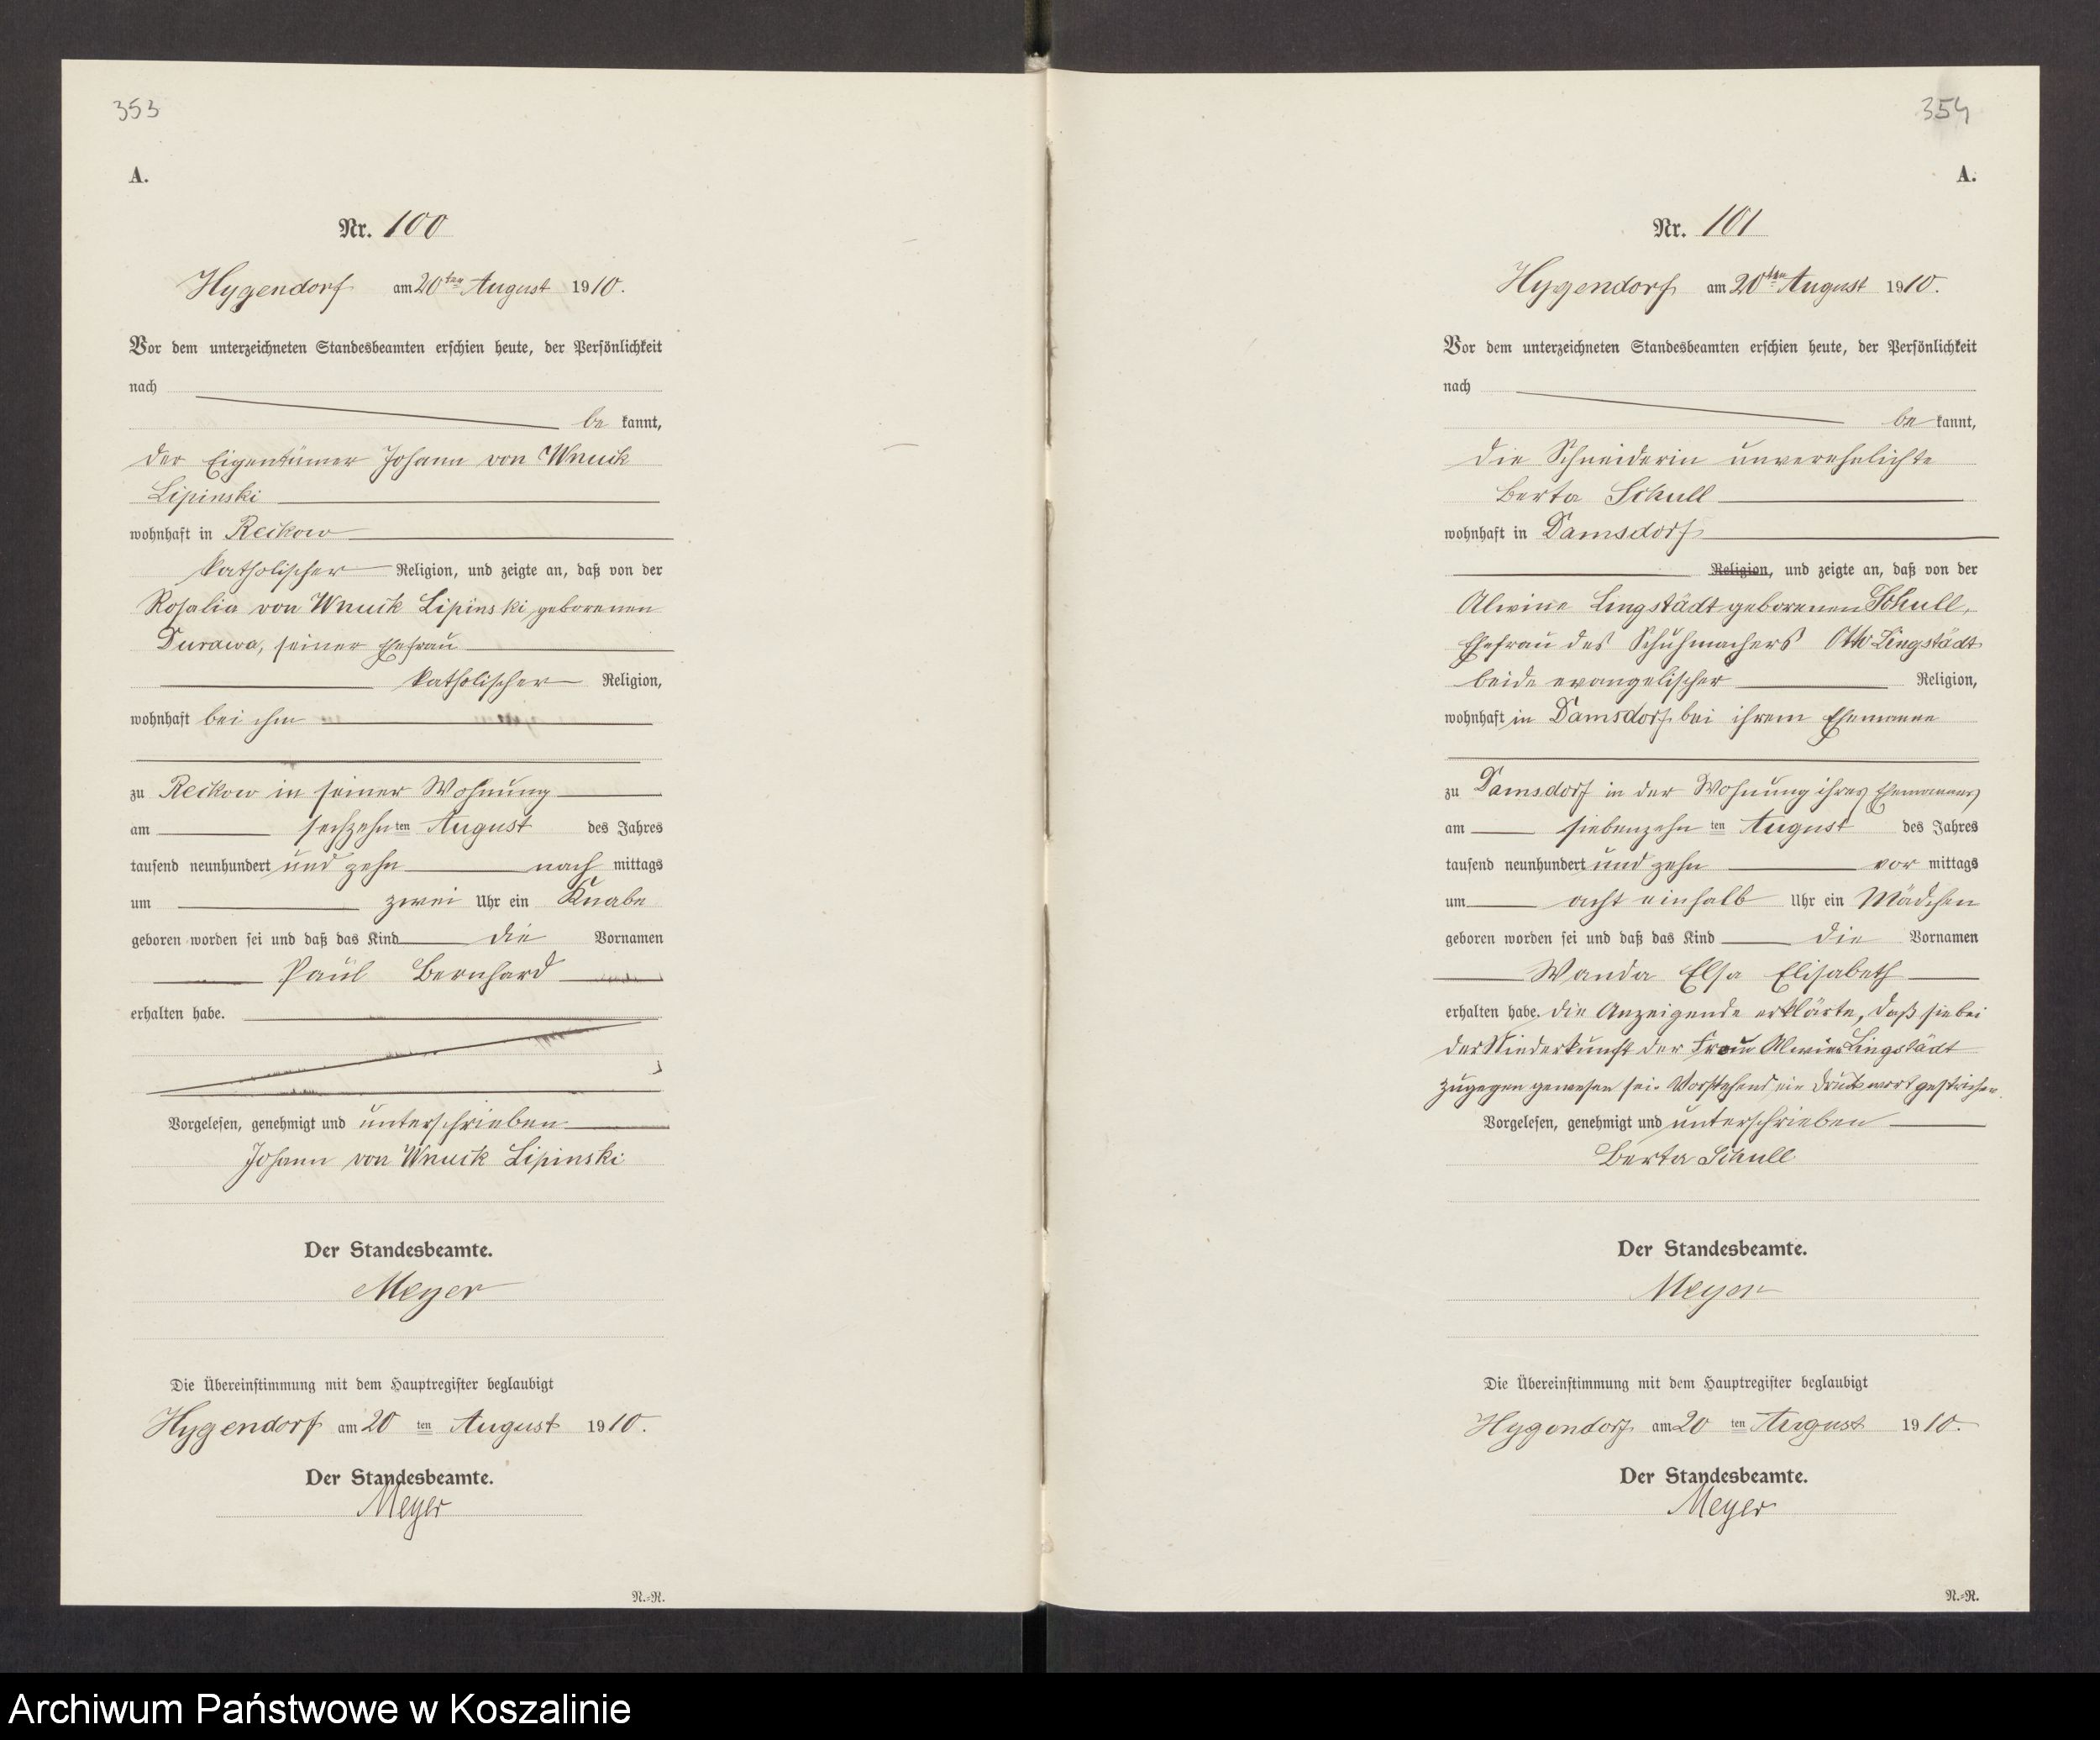 353
A.
Nr. 100
Hygendorf am 20ten August 1910.
Vor dem unterzeichneten Standesbeamten erschien heute, der Persönlichkeit
nach
be kannt,
der Eigentümer Johann von Wnuck
Lipinski
wohnhaft in Reckow
katholischer Religion, und zeigte an, daß von der
Rosalia von Wnuck Lipinski geborenen
Durawa, seiner Ehefrau
katholischer Religion,
wohnhaft bei ihm
zu Reckow in seiner Wohnung
am sechzehn ten August des Jahres
tausend neunhundert und zehn nach mittags
um zwei Uhr ein Knabe
geboren worden sei und daß das Kind die Vornamen
Paul Bernhard
erhalten habe.
Vorgelesen, genehmigt und unterschrieben
Johann von Wnuck Lipinski
Der Standesbeamte.
Meyer
Die Übereinstimmung mit dem Hauptregister beglaubigt
Hygendorf am 20 ten August 1910.
Der Standesbeamte.
Meyer
N.-R.
354
A.
Nr. 101
Hygendorf am 20ten August 1910.
Vor dem unterzeichneten Standesbeamten erschien heute, der Persönlichkeit
nach
be kannt,
die Schneiderin unverehelichte
Berta Schull
wohnhaft in Damsdorf
Religion, und zeigte an, daß von der
Alwine Lingstädt geborenen Schull,
Ehefrau des Schuhmachers Otto Lingstädt
beide evangelischer Religion,
wohnhaft in Damsdorf bei ihrem Ehemanne
zu Damsdorf in der Wohnung ihres Ehemannes
am siebenzehn ten August des Jahres
tausend neunhundert und zehn vor mittags
um acht einhalb Uhr ein Mädchen
geboren worden sei und daß das Kind die Vornamen
Wanda Elsa Elisabeth
erhalten habe. Die Anzeigende erklärte, daß sie bei
der Niederkunft der Frau Alwine Lingstädt
zugegen gewesen sei. Vorstehend ein Druckwort gestrichen.
Vorgelesen, genehmigt und unterschrieben
Berta Schull
Der Standesbeamte.
Meyer
Die Übereinstimmung mit dem Hauptregister beglaubigt
Hygendorf am 20 ten August 1910.
Der Standesbeamte.
Meyer
N.-R.
Archiwum Państwowe w Koszalinie